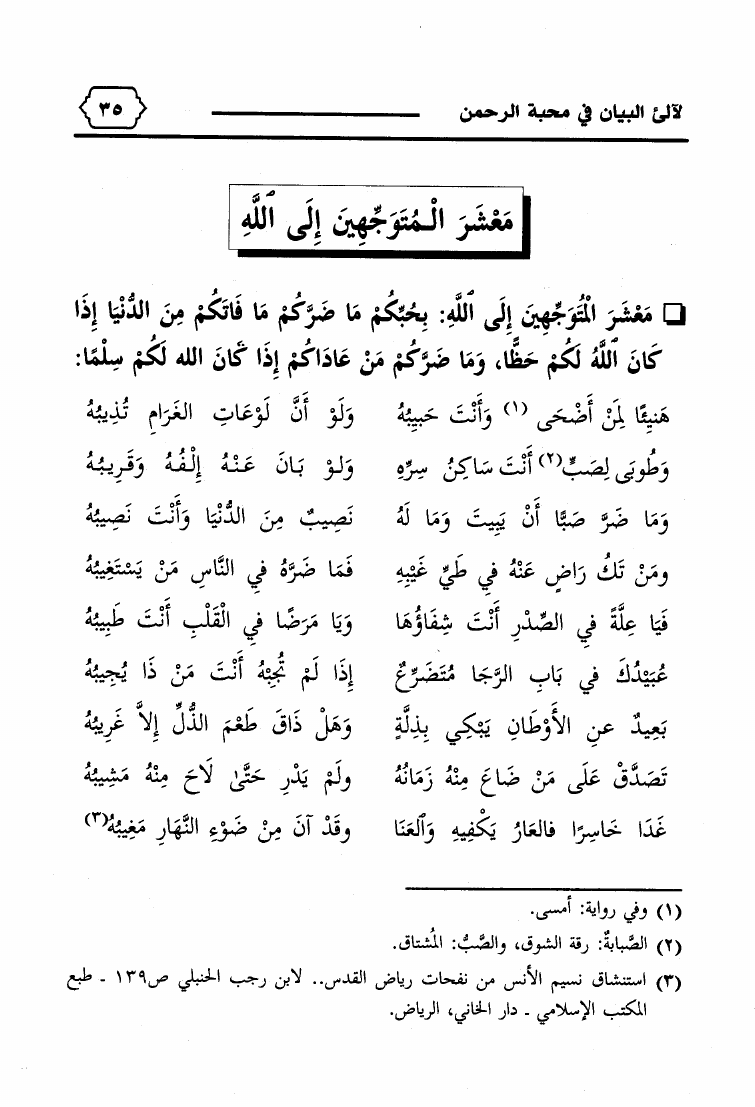 لآلئ البيان في محبة الرحمن ٣٥
مَعْشَرَ الْمُتَوَجِّهِينَ إِلَى ٱللَّهِ
❏ مَعْشَرَ الْمُتَوَجِّهِينَ إِلَى ٱللَّهِ: بِحُبِّكُمْ مَا ضَرَّكُمْ مَا فَاتَكُمْ مِنَ الدُّنْيَا إِذَا
كَانَ ٱللَّهُ لَكُمْ حَظًّا، وَمَا ضَرَّكُمْ مَنْ عَادَاكُمْ إِذَا كَانَ الله لَكُمْ سِلْمًا:
هَنِيئًا لِمَنْ أَضْحَى (١) وَأَنْتَ حَبِيبُهُ وَلَوْ أَنَّ لَوْعَاتِ الغَرَامِ تُذِيبُهُ
وَطُوبَى لِصَبٍّ(٢) أَنْتَ سَاكِنُ سِرِّهِ وَلَوْ بَانَ عَنْهُ إِلْفُهُ وَقَرِيبُهُ
وَمَا ضَرَّ صَبًّا أَنْ يَبِيتَ وَمَا لَهُ نَصِيبٌ مِنَ الدُّنْيَا وَأَنْتَ نَصِيبُهُ
ومَنْ تَكُ رَاضٍ عَنْهُ في طَيِّ غَيْبِهِ فَمَا ضَرَّهُ فِي النَّاسِ مَنْ يَسْتَغِيبُهُ
فَيَا عِلَّةً فِي الصَّدْرِ أَنْتَ شِفَاؤُهَا وَيَا مَرَضًا فِي الْقَلْبِ أَنْتَ طَبِيبُهُ
عُبَيْدُكَ في بَابِ الرَّجَا مُتَضَرِّعٌ إِذَا لَمْ تُجِبْهُ أَنْتَ مَنْ ذَا يُجِيبُهُ
بَعِيدٌ عنِ الأَوْطَانِ يَبْكِي بِذِلَّةٍ وَهَلْ ذَاقَ طَعْمَ الذُّلِّ إِلاَّ غَرِيبُهُ
تَصَدَّقْ عَلَى مَنْ ضَاعَ مِنْهُ زَمَانُهُ ولَمْ يَدْرِ حَتَّىٰ لَاحَ مِنْهُ مَشِيبُهُ
غَدَا خَاسِرًا فالعَارُ يَكْفِيهِ وَٱلعَنَا وقَدْ آنَ مِنْ ضَوْءِ النَّهَارِ مَغِيبُهُ(٣)
(١) وفي رواية: أمسى.
(٢) الصَّبابةُ: رقة الشوق، والصَّبُّ: المُشتاق.
(٣) استنشاق نسيم الأنس من نفحات رياض القدس.. لابن رجب الحنبلي ص١٣٩ ـ طبع
المكتب الإسلامي ـ دار الخاني، الرياض.